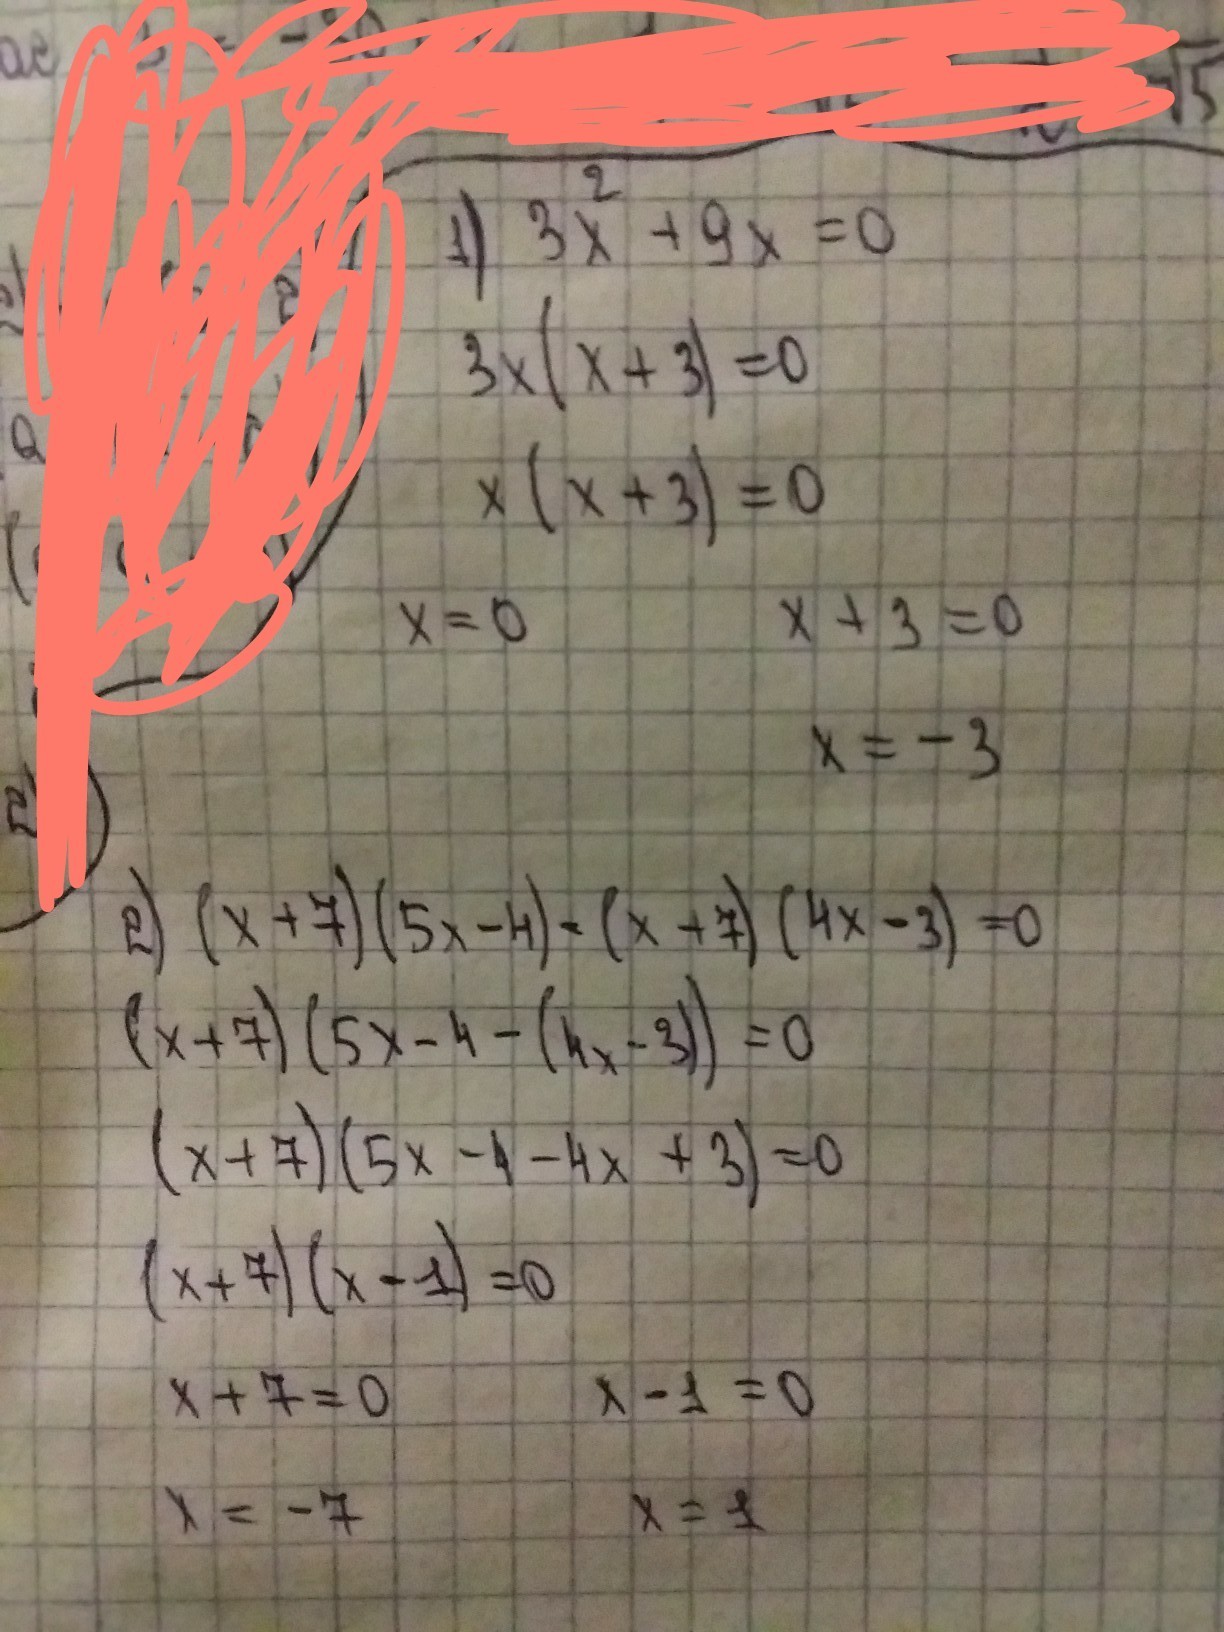 1) 3x² + 9x = 0
3x(x + 3) = 0
x(x + 3) = 0
x = 0 x + 3 = 0
x = -3
2) (x + 7)(5x - 4) - (x + 7)(4x - 3) = 0
(x + 7)(5x - 4 - (4x - 3)) = 0
(x + 7)(5x - 4 - 4x + 3) = 0
(x + 7)(x - 1) = 0
x + 7 = 0 x - 1 = 0
x = -7 x = 1